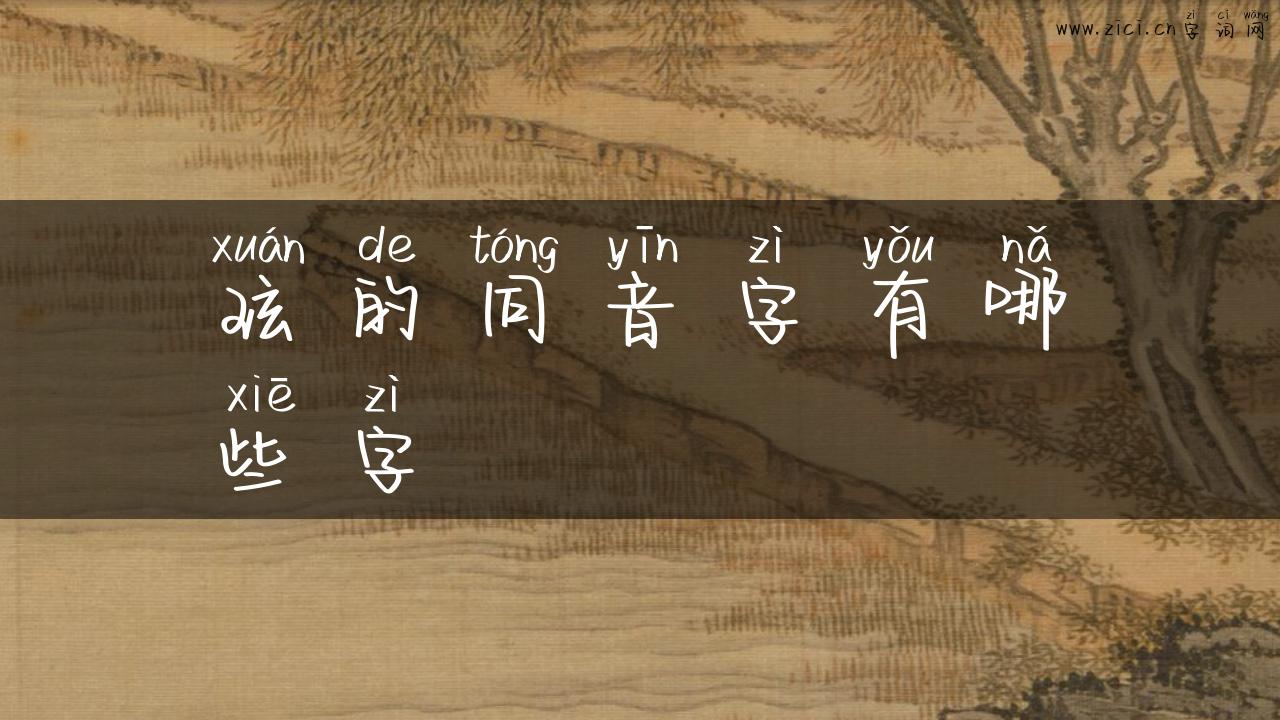 www.zici.cn zì cí wǎng
字词网
xuán de tóng yīn zì yǒu nǎ
玹的同音字有哪
xiē zì
些字